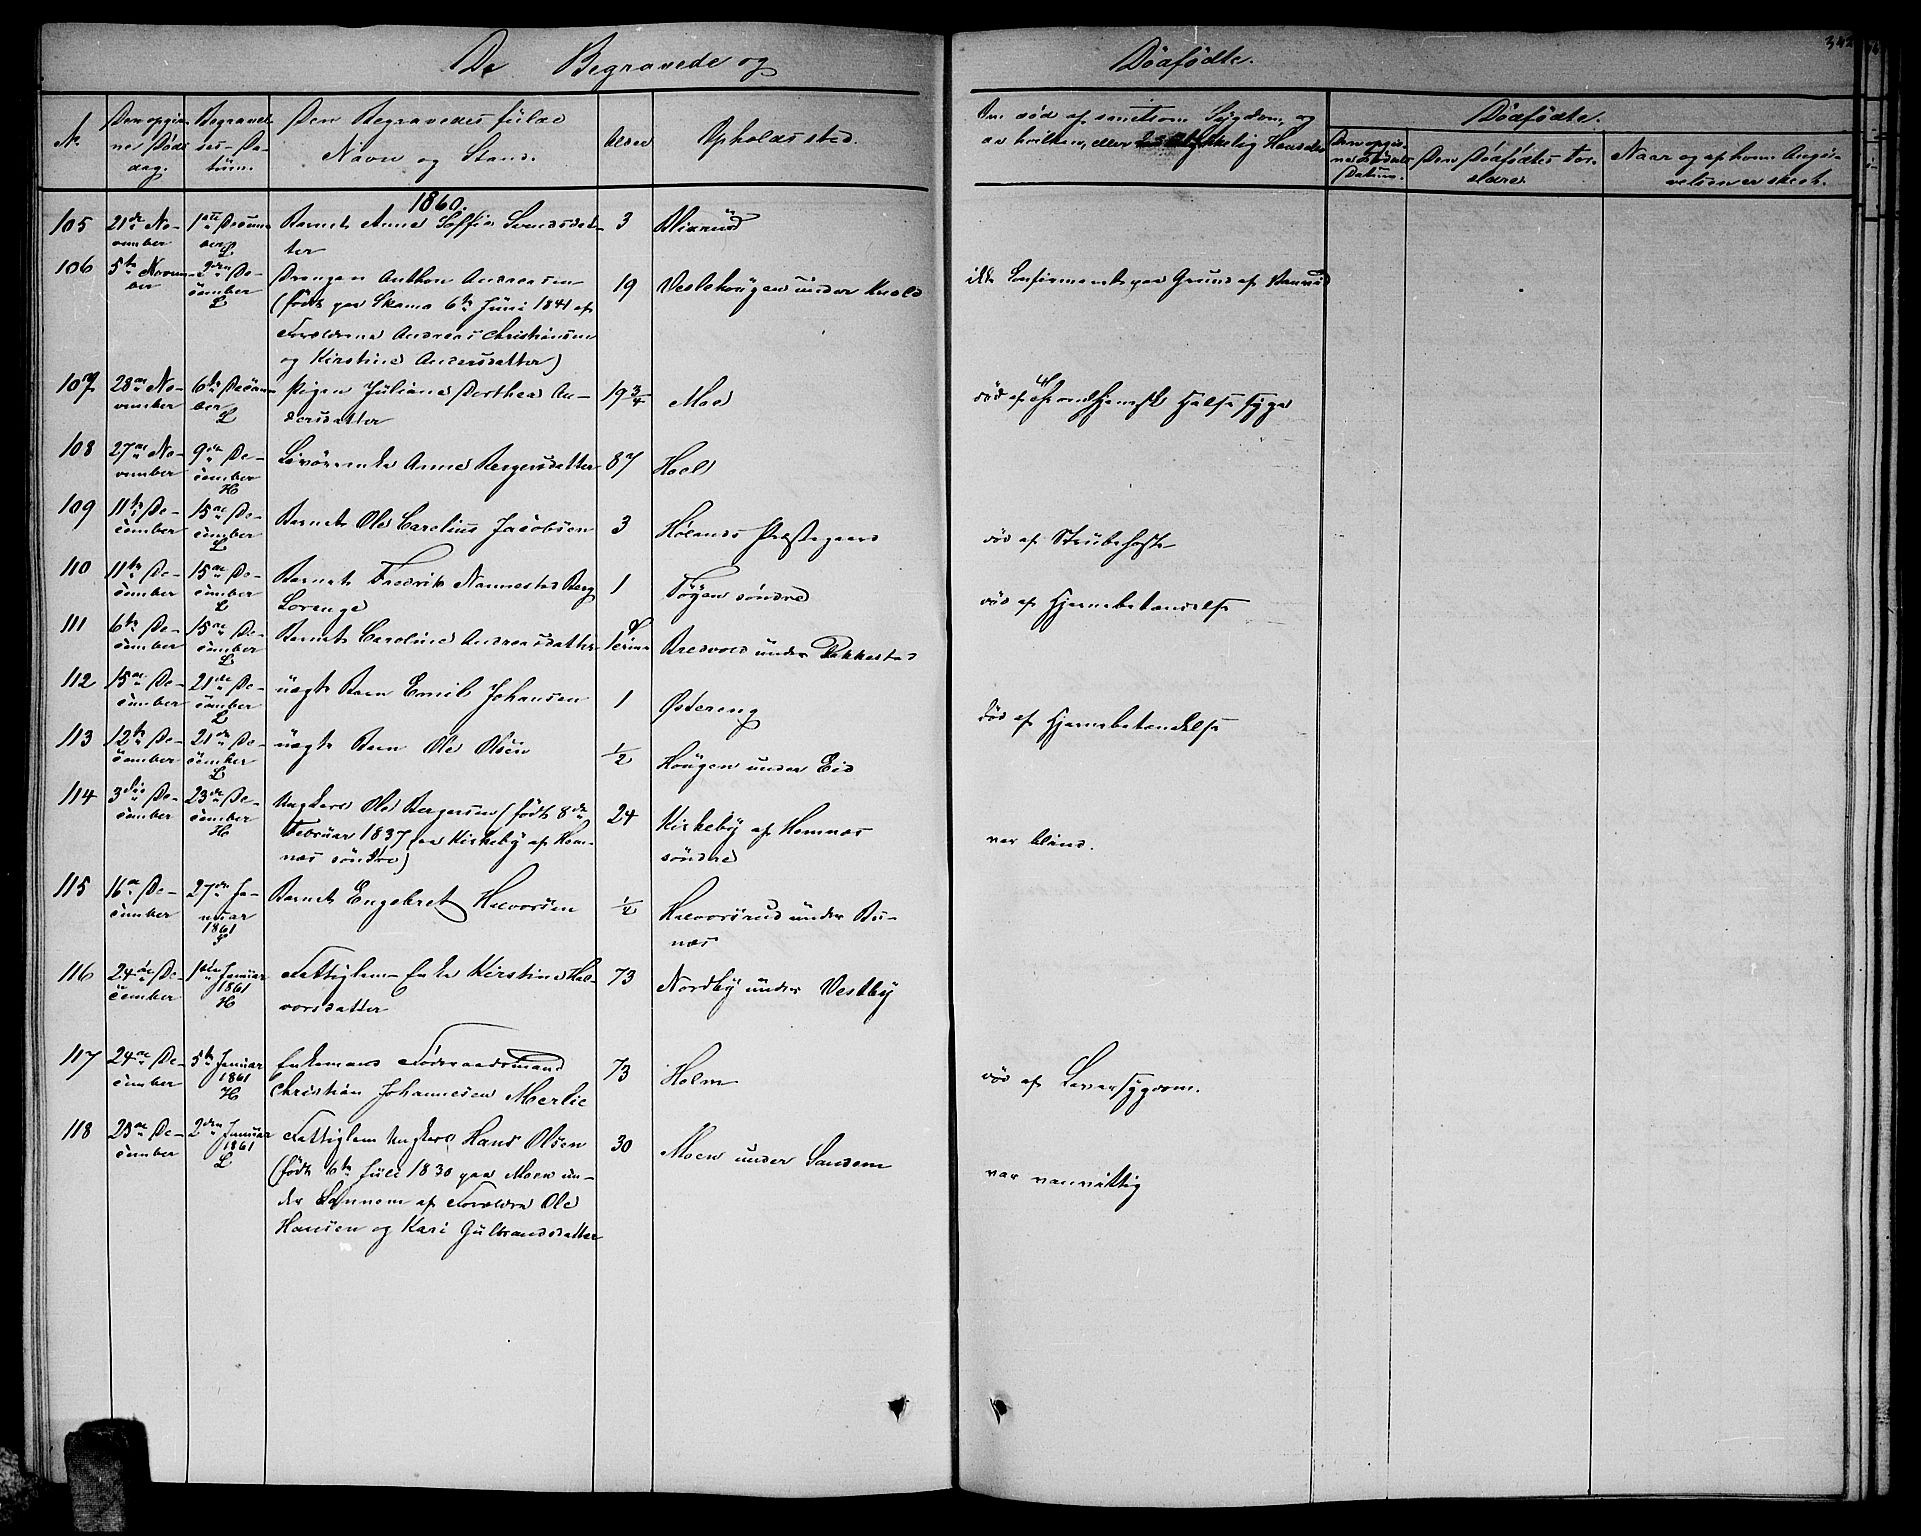 De Begravede og
Dødfødte.
342
No.
Den opgiv-
ne Døds
dag.
Begravel-
ses-Da-
tum.
Den Begravedes fulde
Navn og Stand.
Alder
Opholdssted.
Om død af smitsom Sygdom, og
av hvilken, eller ulykkelig Hændelse
Dødfødte.
Den opgiv-
ne Fødsels
Datum.
Den Dødfødtes For-
ældre.
Naar og af hvem Angi-
velsen er skeet.
1860.
105 21de No-
vember 1ste Decem-
ber L Barnet Anne Soffie Svendsdat-
ter 3
106 5te Novem-
ber 9de De-
cember L Drengen Anthon Andreasen
(født paa Skama 6te Juni 1841 af
Forældrene Andreas Christiansen
og Kirstine Andersdatter) 19 Veslehougen under Kvæld ikke Confirmeret paa Grund af
107 28de No-
vember 6te Decem-
ber L Pigen Juliane Dorthea An-
dersdatter 19 3/4 Moe død af Trondhjemsk Halssyge
108 27de No-
vember 9de De-
cember H Anne Bergersdatter 87 Hoel
109 11te De-
cember 15de De-
cember L Barnet Ole Carelius Jacobsen 3 Hølands Præstegaard død af Strubehoste
110 11te De-
cember 15de De-
cember L Barnet Fredrik Nannestad Berg
Lorenge 1 Føyen søndre død af Hjernebetændelse
111 6te De-
cember 15de De-
cember L Barnet Caroline Andreasdatter Bredvold under Bakkestad
112 15de De-
cember 21de De-
cember L uægte Barn Emil Johansen 1 Østereng død af Hjernebetændelse
113 12te De-
cember 21de De-
cember L uægte Barn Ole Olsen 1/2 Hougen under Eid
114 3die De-
cember 23de De-
cember H Ungkarl Ole Bergersen (født 8de
Februar 1837 paa Kirkeby af Hem-
næs søndre) 24 Kirkeby af Hemnæs
søndre var blind.
115 16de De-
cember 27de Ja-
nuar
1861 Barnet Engebret Halvorsen 1/2 Halvorsrud under Bu-
næs
116 24de De-
cember 1ste Januar
1861
H Fattiglem Enke Kirstine Hal-
vorsdatter 73 Nordby under Vestby
117 24de De-
cember 5te Januar
1861
H Enkemand Føderaadsmand
Christian Johannesen Mærlie 73 Holm død af Leversygdom.
118 23de De-
cember 2den Januar
1861
L Fattiglem Ungkarl Hans Olsen
(født 6te Juli 1830 paa Moen un-
der Sannem af Forældre Ole
Hansen og Kari Gulbrandsdatter 30 Moen under Sandem var vanvittig